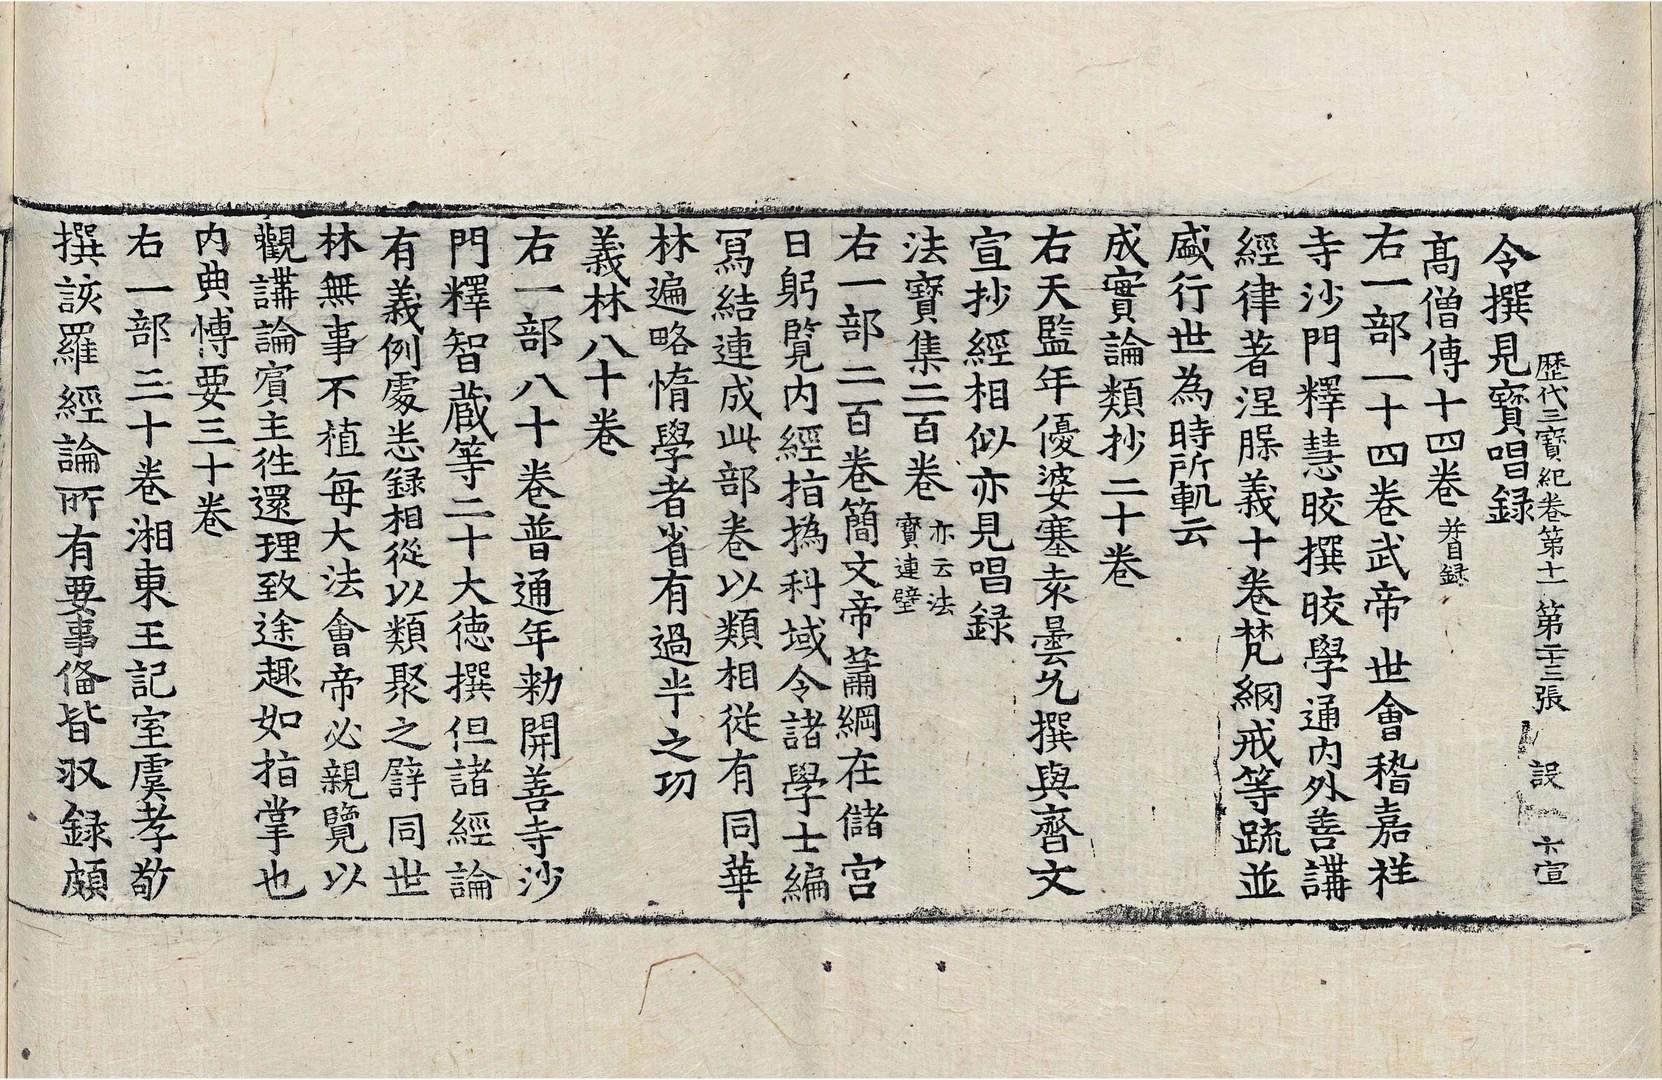 歷代三寶紀卷第十一 第二十三張 設 宣
令撰見寶唱錄
髙僧傳十四卷 并目録
右一部一十四卷武帝世會稽嘉祥
寺沙門釋慧皎撰皎學通內外善講
經律著涅槃義十卷梵網戒等䟽並
盛行世為時所軌云
成實論類抄二十卷
右天監年優婆塞袁曇允撰與齊文
宣抄經相似亦見唱錄
法寶集二百卷 亦云法
寶連壁
右一部二百卷簡文帝蕭綱在儲宮
日躬覽內經指撝科域令諸學士編
冩結連成此部卷以類相從有同華
林遍略惰學者省有過半之功
義林八十卷
右一部八十卷普通年勑開善寺沙
門釋智藏等二十大德撰但諸經論
有義例處悉録相從以類聚之譬同世
林無事不植每大法會帝必親覽以
觀講論賓主往還理致途趣如指掌也
內典博要三十卷
右一部三十卷湘東王記室虞孝敬
撰該羅經論所有要事俻皆収録頗